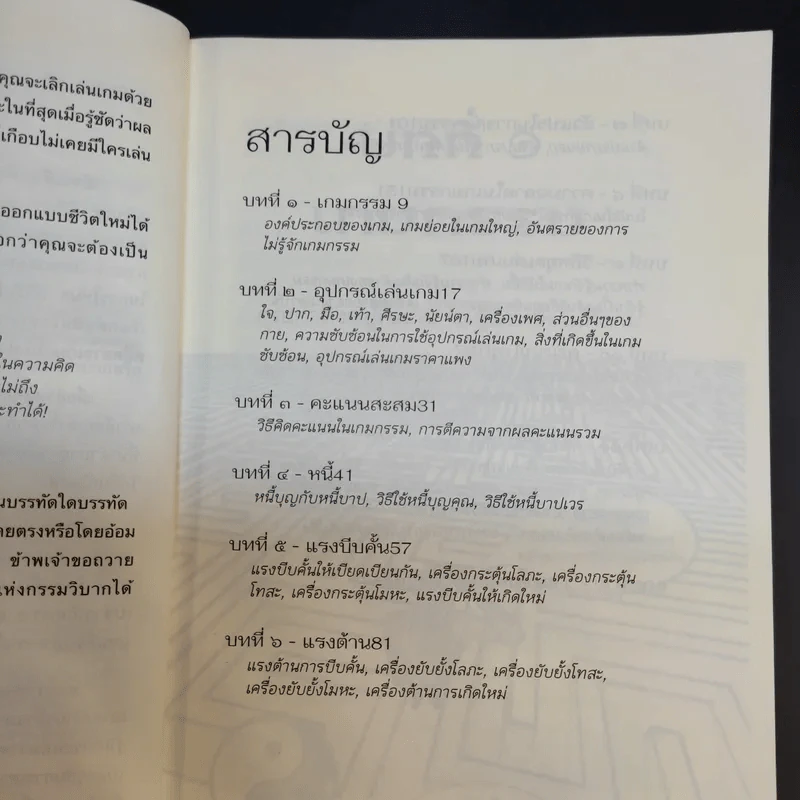 คุณจะเลิกเล่นเกมด้วย
ะในที่สุดเมื่อรู้ชัดว่าผล
เกือบไม่เคยมีใครเล่น
ออกแบบชีวิตใหม่ได้
อกว่าคุณจะต้องเป็น
ในความคิด
ไม่ถึง
ะทำได้!
นบรรทัดใดบรรทัด
ดยตรงหรือโดยอ้อม
ข้าพเจ้าขอถวาย
แห่งกรรมวิบากได้
สารบัญ
บทที่ ๑ - เกมกรรม 9
องค์ประกอบของเกม, เกมย่อยในเกมใหญ่, อันตรายของการ
ไม่รู้จักเกมกรรม
บทที่ ๒ - อุปกรณ์เล่นเกม17
ใจ, ปาก, มือ, เท้า, ศีรษะ, นัยน์ตา, เครื่องเพศ, ส่วนอื่นๆของ
กาย, ความซับซ้อนในการใช้อุปกรณ์เล่นเกม, สิ่งที่เกิดขึ้นในเกม
ซับซ้อน, อุปกรณ์เล่นเกมราคาแพง
บทที่ ๓ - คะแนนสะสม31
วิธีคิดคะแนนในเกมกรรม, การตีความจากผลคะแนนรวม
บทที่ ๔ - หนี้41
หนี้บุญกับหนี้บาป, วิธีใช้หนี้บุญคุณ, วิธีใช้หนี้บาปเวร
บทที่ ๕ - แรงบีบคั้น57
แรงบีบคั้นให้เบียดเบียนกัน, เครื่องกระตุ้นโลภะ, เครื่องกระตุ้น
โทสะ, เครื่องกระตุ้นโมหะ, แรงบีบคั้นให้เกิดใหม่
บทที่ ๖ - แรงต้าน81
แรงต้านการบีบคั้น, เครื่องยับยั้งโลภะ, เครื่องยับยั้งโทสะ,
เครื่องยับยั้งโมหะ, เครื่องต้านการเกิดใหม่